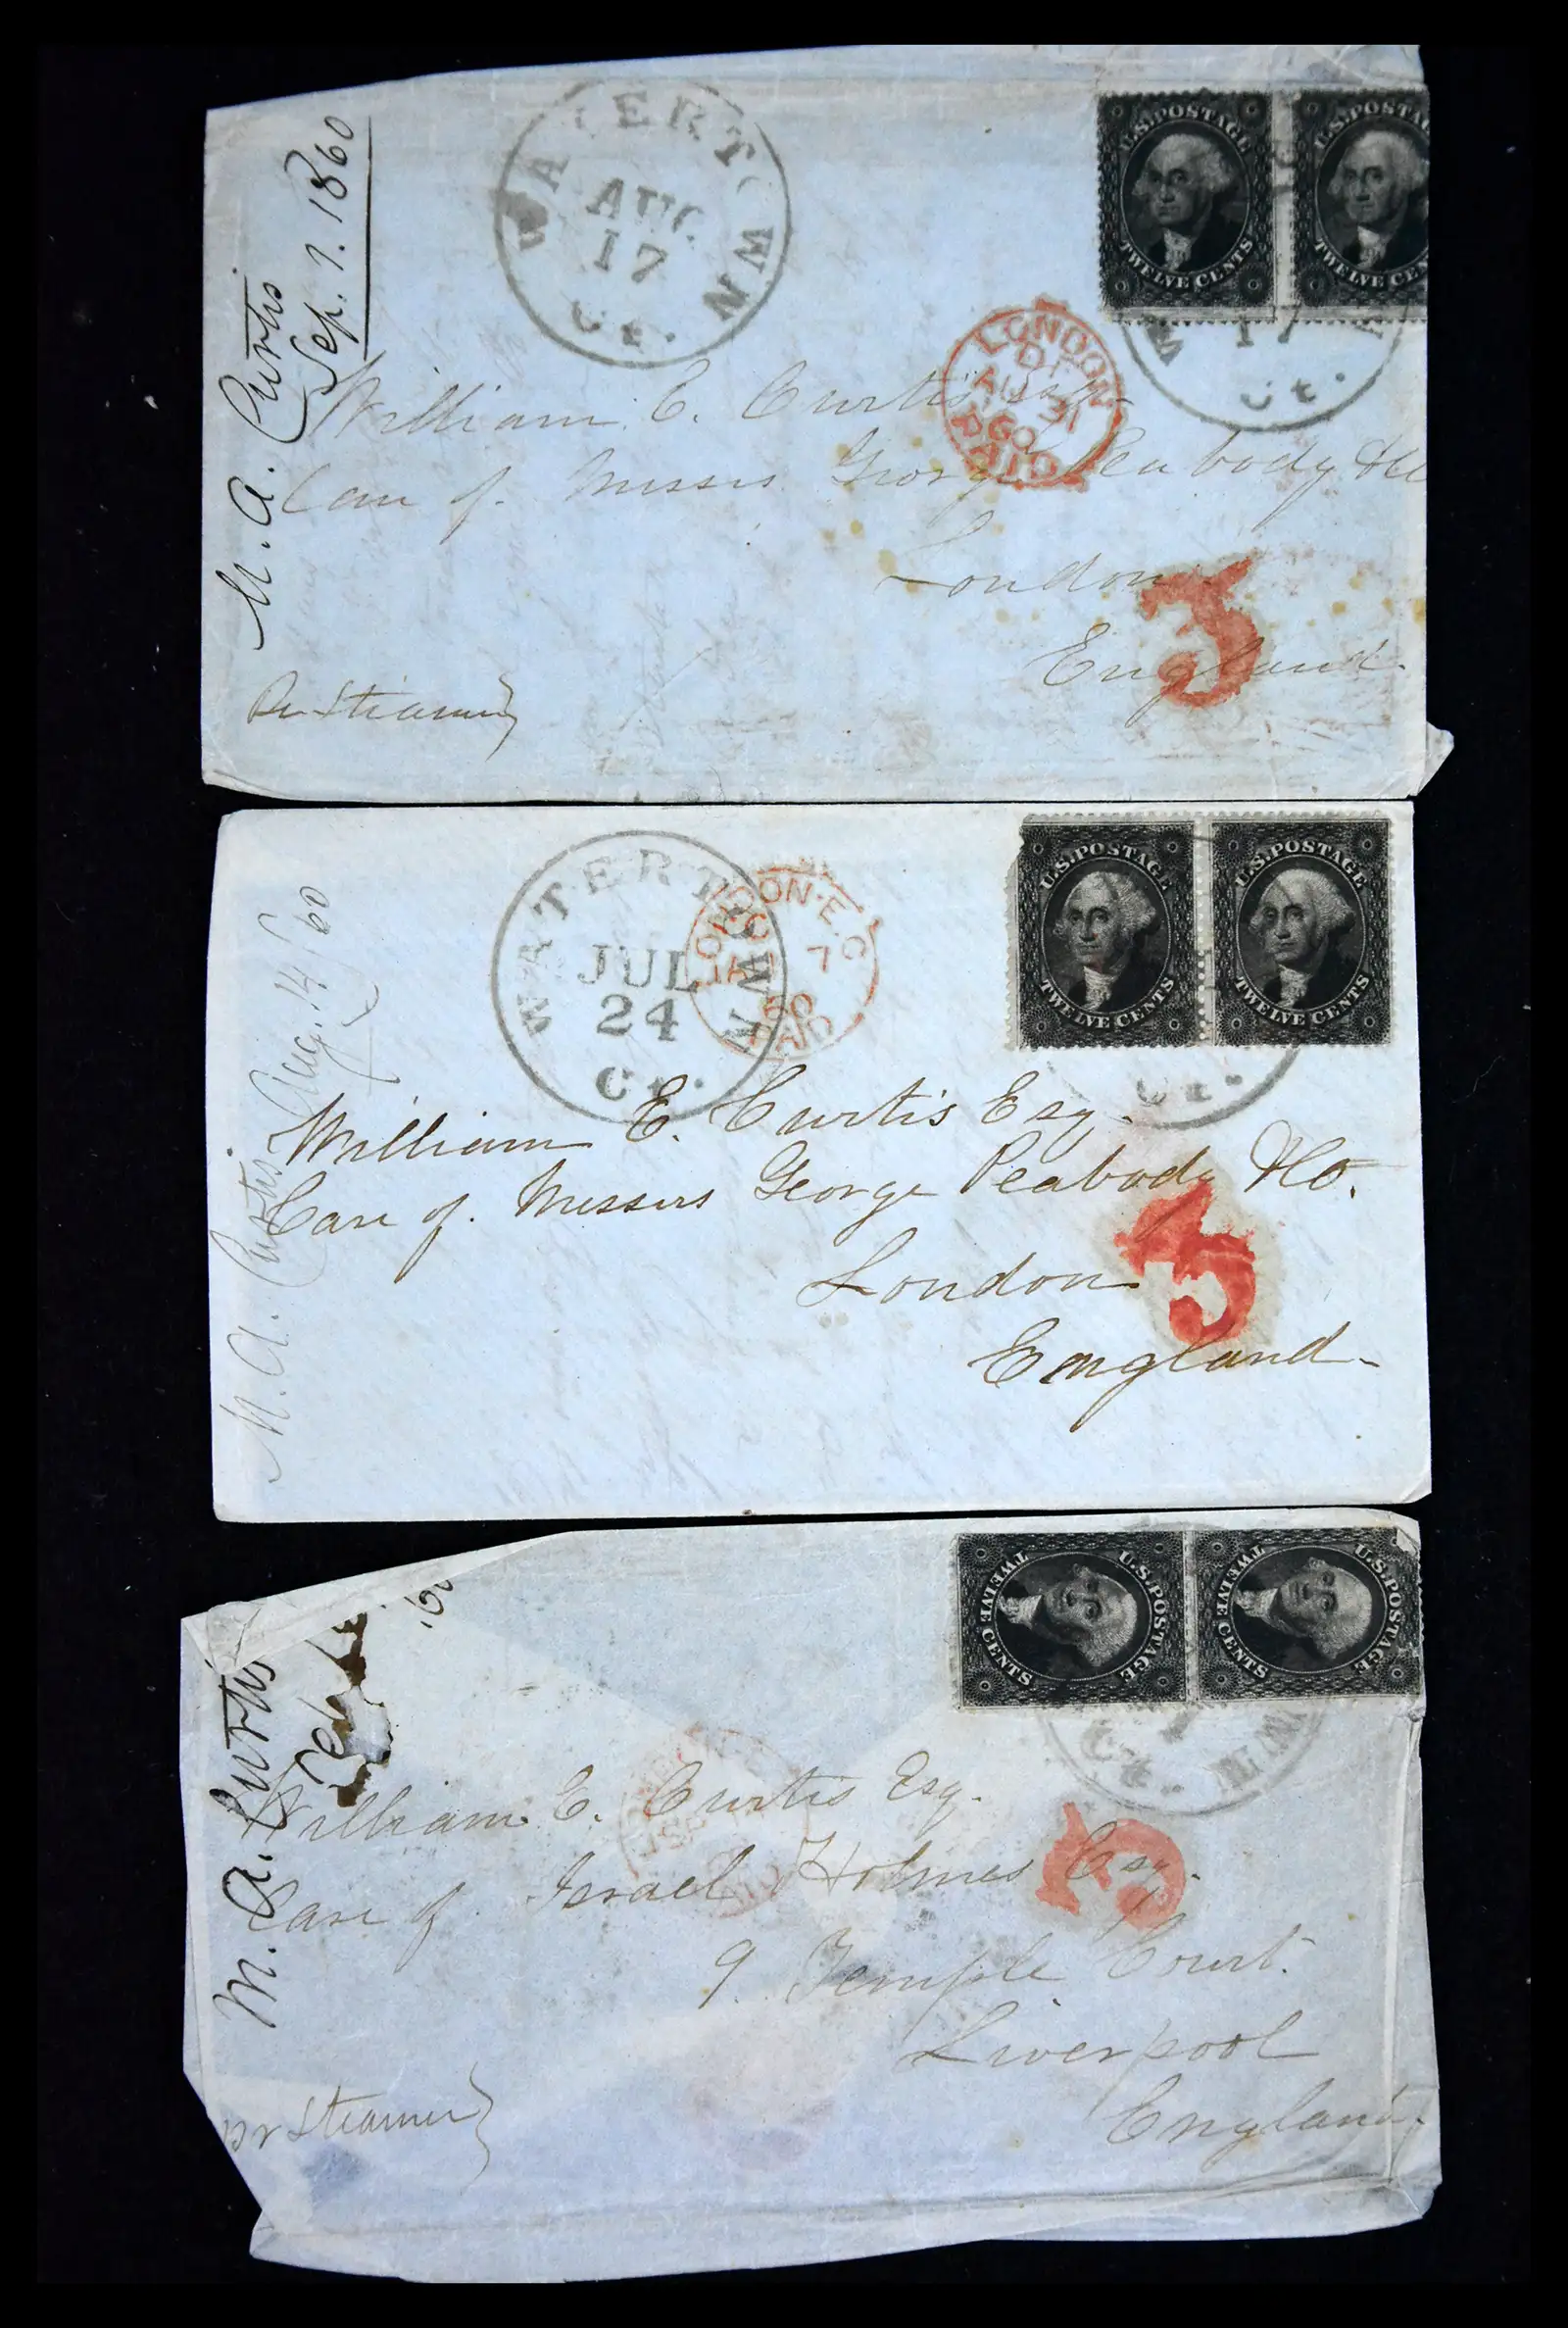 M. A. Curtis
Sep. 1. 1860
WATERTOWN
AUG
17
Ct.
U.S. POSTAGE
TWELVE CENTS
U.S. POST
TWELVE CEN
17
Ct.
LONDON
AU 31
60
PAID
William E. Curtis Esq
Care of Messrs George Peabody & Co
London
England.
3
Pr Steamer
M. A. Curtis
Aug. 14 / 60
WATERTOWN
JUL
24
Ct.
LONDON.E.C
7
60
PAID
U.S. POSTAGE
TWELVE CENTS
U.S. POSTAGE
TWELVE CENTS
Ct.
William E. Curtis Esq.
Care of Messrs George Peabody & Co.
London
England
3
M. A. Curtis
U.S. POSTAGE
TWELVE CENTS
U.S. POSTAGE
TWELVE CENTS
Ct.
William E. Curtis Esq.
Care of Israel Holmes Esq.
9 Temple Court.
Liverpool
England
3
pr Steamer